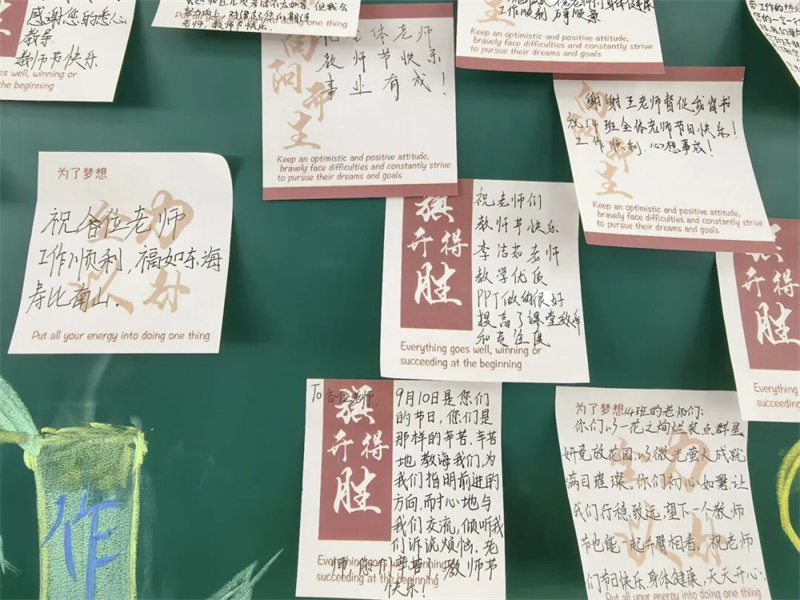 感谢您的悉心
教导
教师节快乐
goes well, winning or
at the beginning
doing one thing
老师,教师节快乐
全体老师
教师节快乐
事业有成!
向阳而生
Keep an optimistic and positive attitude,
bravely face difficulties and constantly strive
to pursue their dreams and goals
工作顺利 万事顺意
Keep an optimistic and positive attitude,
bravely face difficulties and constantly strive
to pursue their dreams and goals
谢谢王老师督促我背书
祝14班全体老师节日快乐!
工作顺利,心想事成!
向阳而生
Keep an optimistic and positive attitude,
bravely face difficulties and constantly strive
to pursue their dreams and goals
为了梦想
祝各位老师
工作顺利,福如东海
寿比南山.
全力以赴
Put all your energy into doing one thing
旗开得胜
祝老师们
教师节快乐
李洁茹老师
教学优良
PPT做的很好
提高了课堂效率
和专注度
Everything goes well, winning or
succeeding at the beginning
旗开得胜
Everything
succeeding
To 各位老师,
旗开得胜
9月10日是您们
的节日,您们是
那样的辛苦,辛苦
地教诲我们,为
我们指明前进的
方向,耐心地与
我们交流,倾听我
们诉说烦恼.老
师你们辛苦!教师节
快乐!
Everything goes well, winning or
succeeding at the beginning
为了梦想
14班的老师们:
你们以一花之绚烂装点群星
妍竞放花园,以微光萤火成就
满目璀璨。你们初心如磐,让
我们行稳致远,望下一个教师
节也能一起并臂相看,祝老师
们节日快乐,身体健康,天天开心!
全力以赴
Put all your energy into doing one thing
作